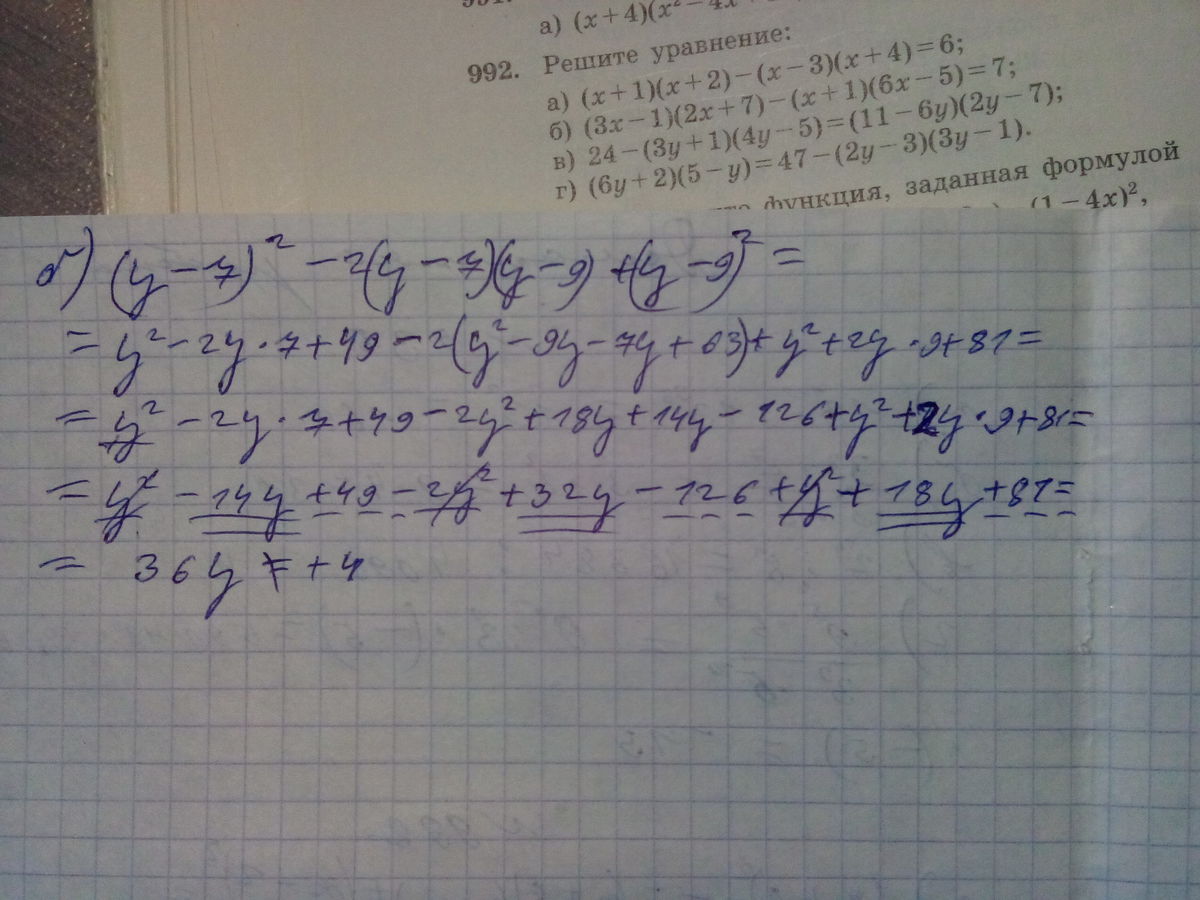 а) (x+4)(x²−4x
992. Решите уравнение:
а) (x+1)(x+2)−(x−3)(x+4)=6;
б) (3x−1)(2x+7)−(x+1)(6x−5)=7;
в) 24−(3y+1)(4y−5)=(11−6y)(2y−7);
г) (6y+2)(5−y)=47−(2y−3)(3y−1).
функция, заданная формулой
(1−4x)²,
б) (y−7)² −2(y−7)(y−9)+(y−9)² =
= y²−2y·7+49−2(y²−9y−7y+63)+y²+2y·9+81=
= y² −2y·7+49−2y²+18y+14y−126+y²+2y·9+81=
= y² −14y +49−2y²+32y−126+y²+18y+81=
= 36y +4